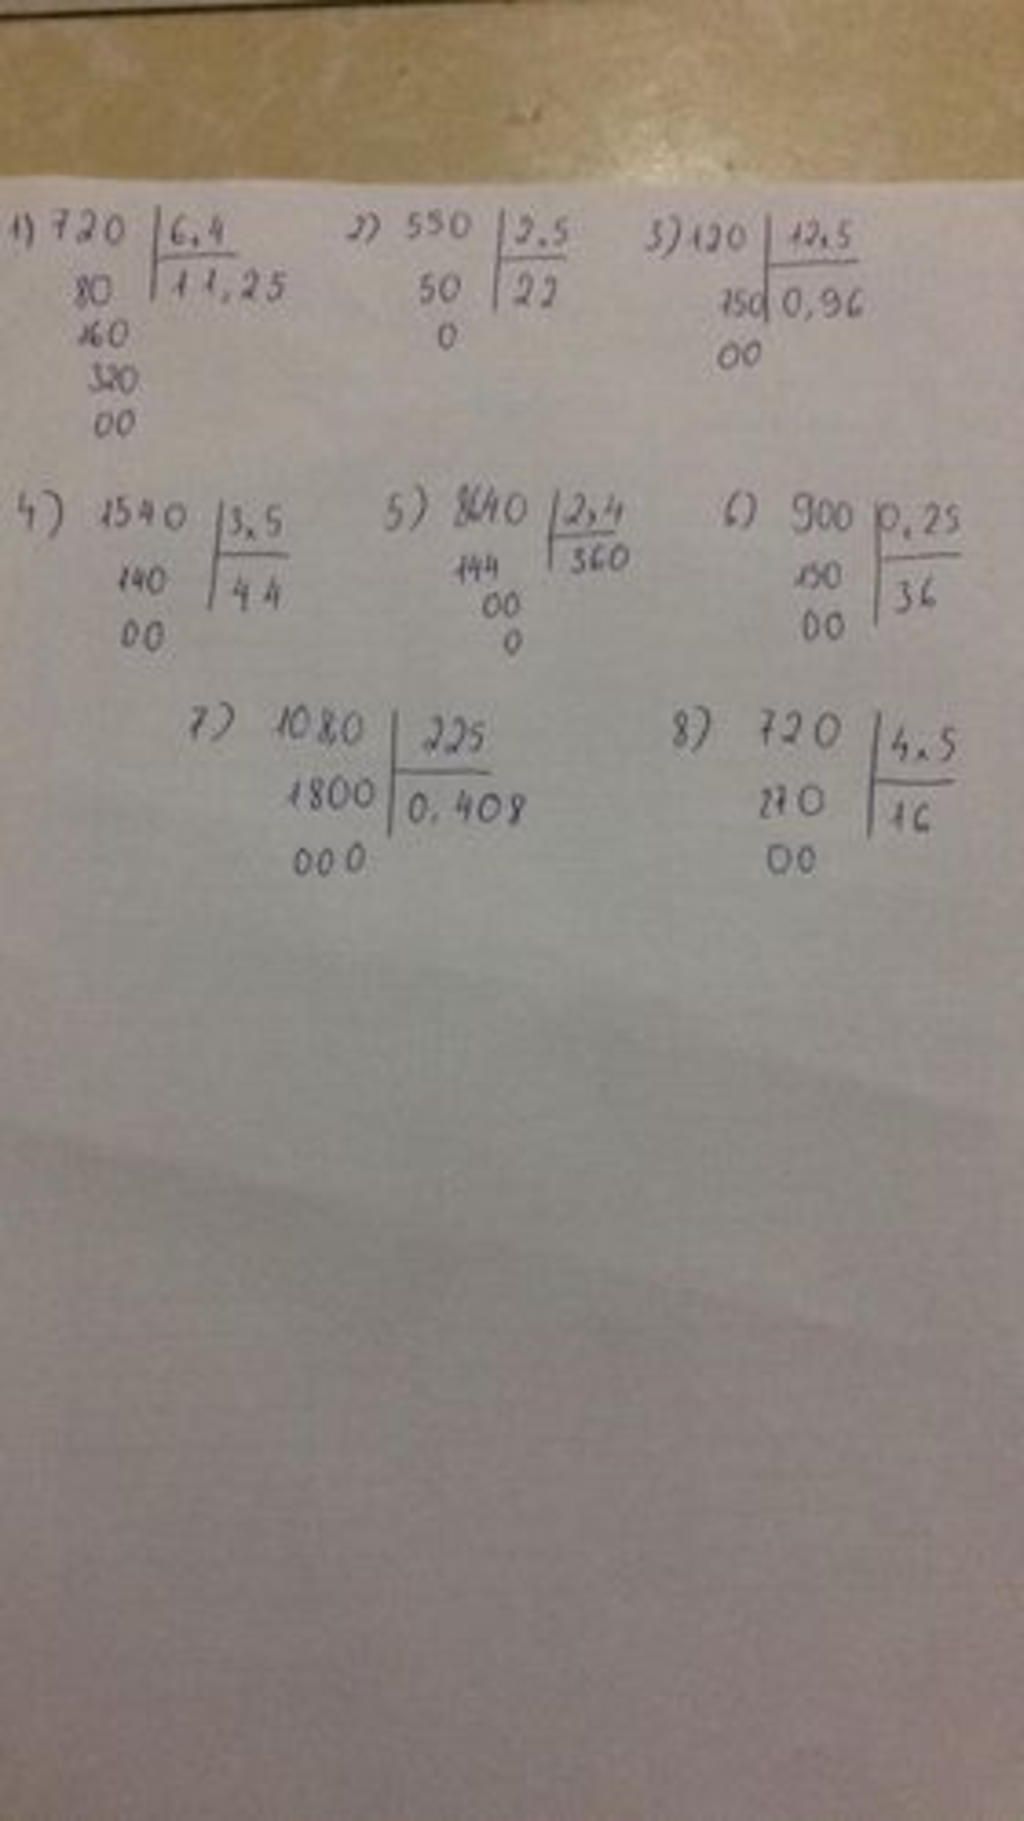 1) 720 6,4 2) 550 2,5 3) 120 12,5
80 11,25 50 22 150 0,96
160 0 00
320
00
4) 1540 3,5 5) 8640 2,4 6) 900 0,25
140 44 144 360 150 36
00 00 00
0
7) 1080 225 8) 720 4,5
1800 0,408 270 16
000 00